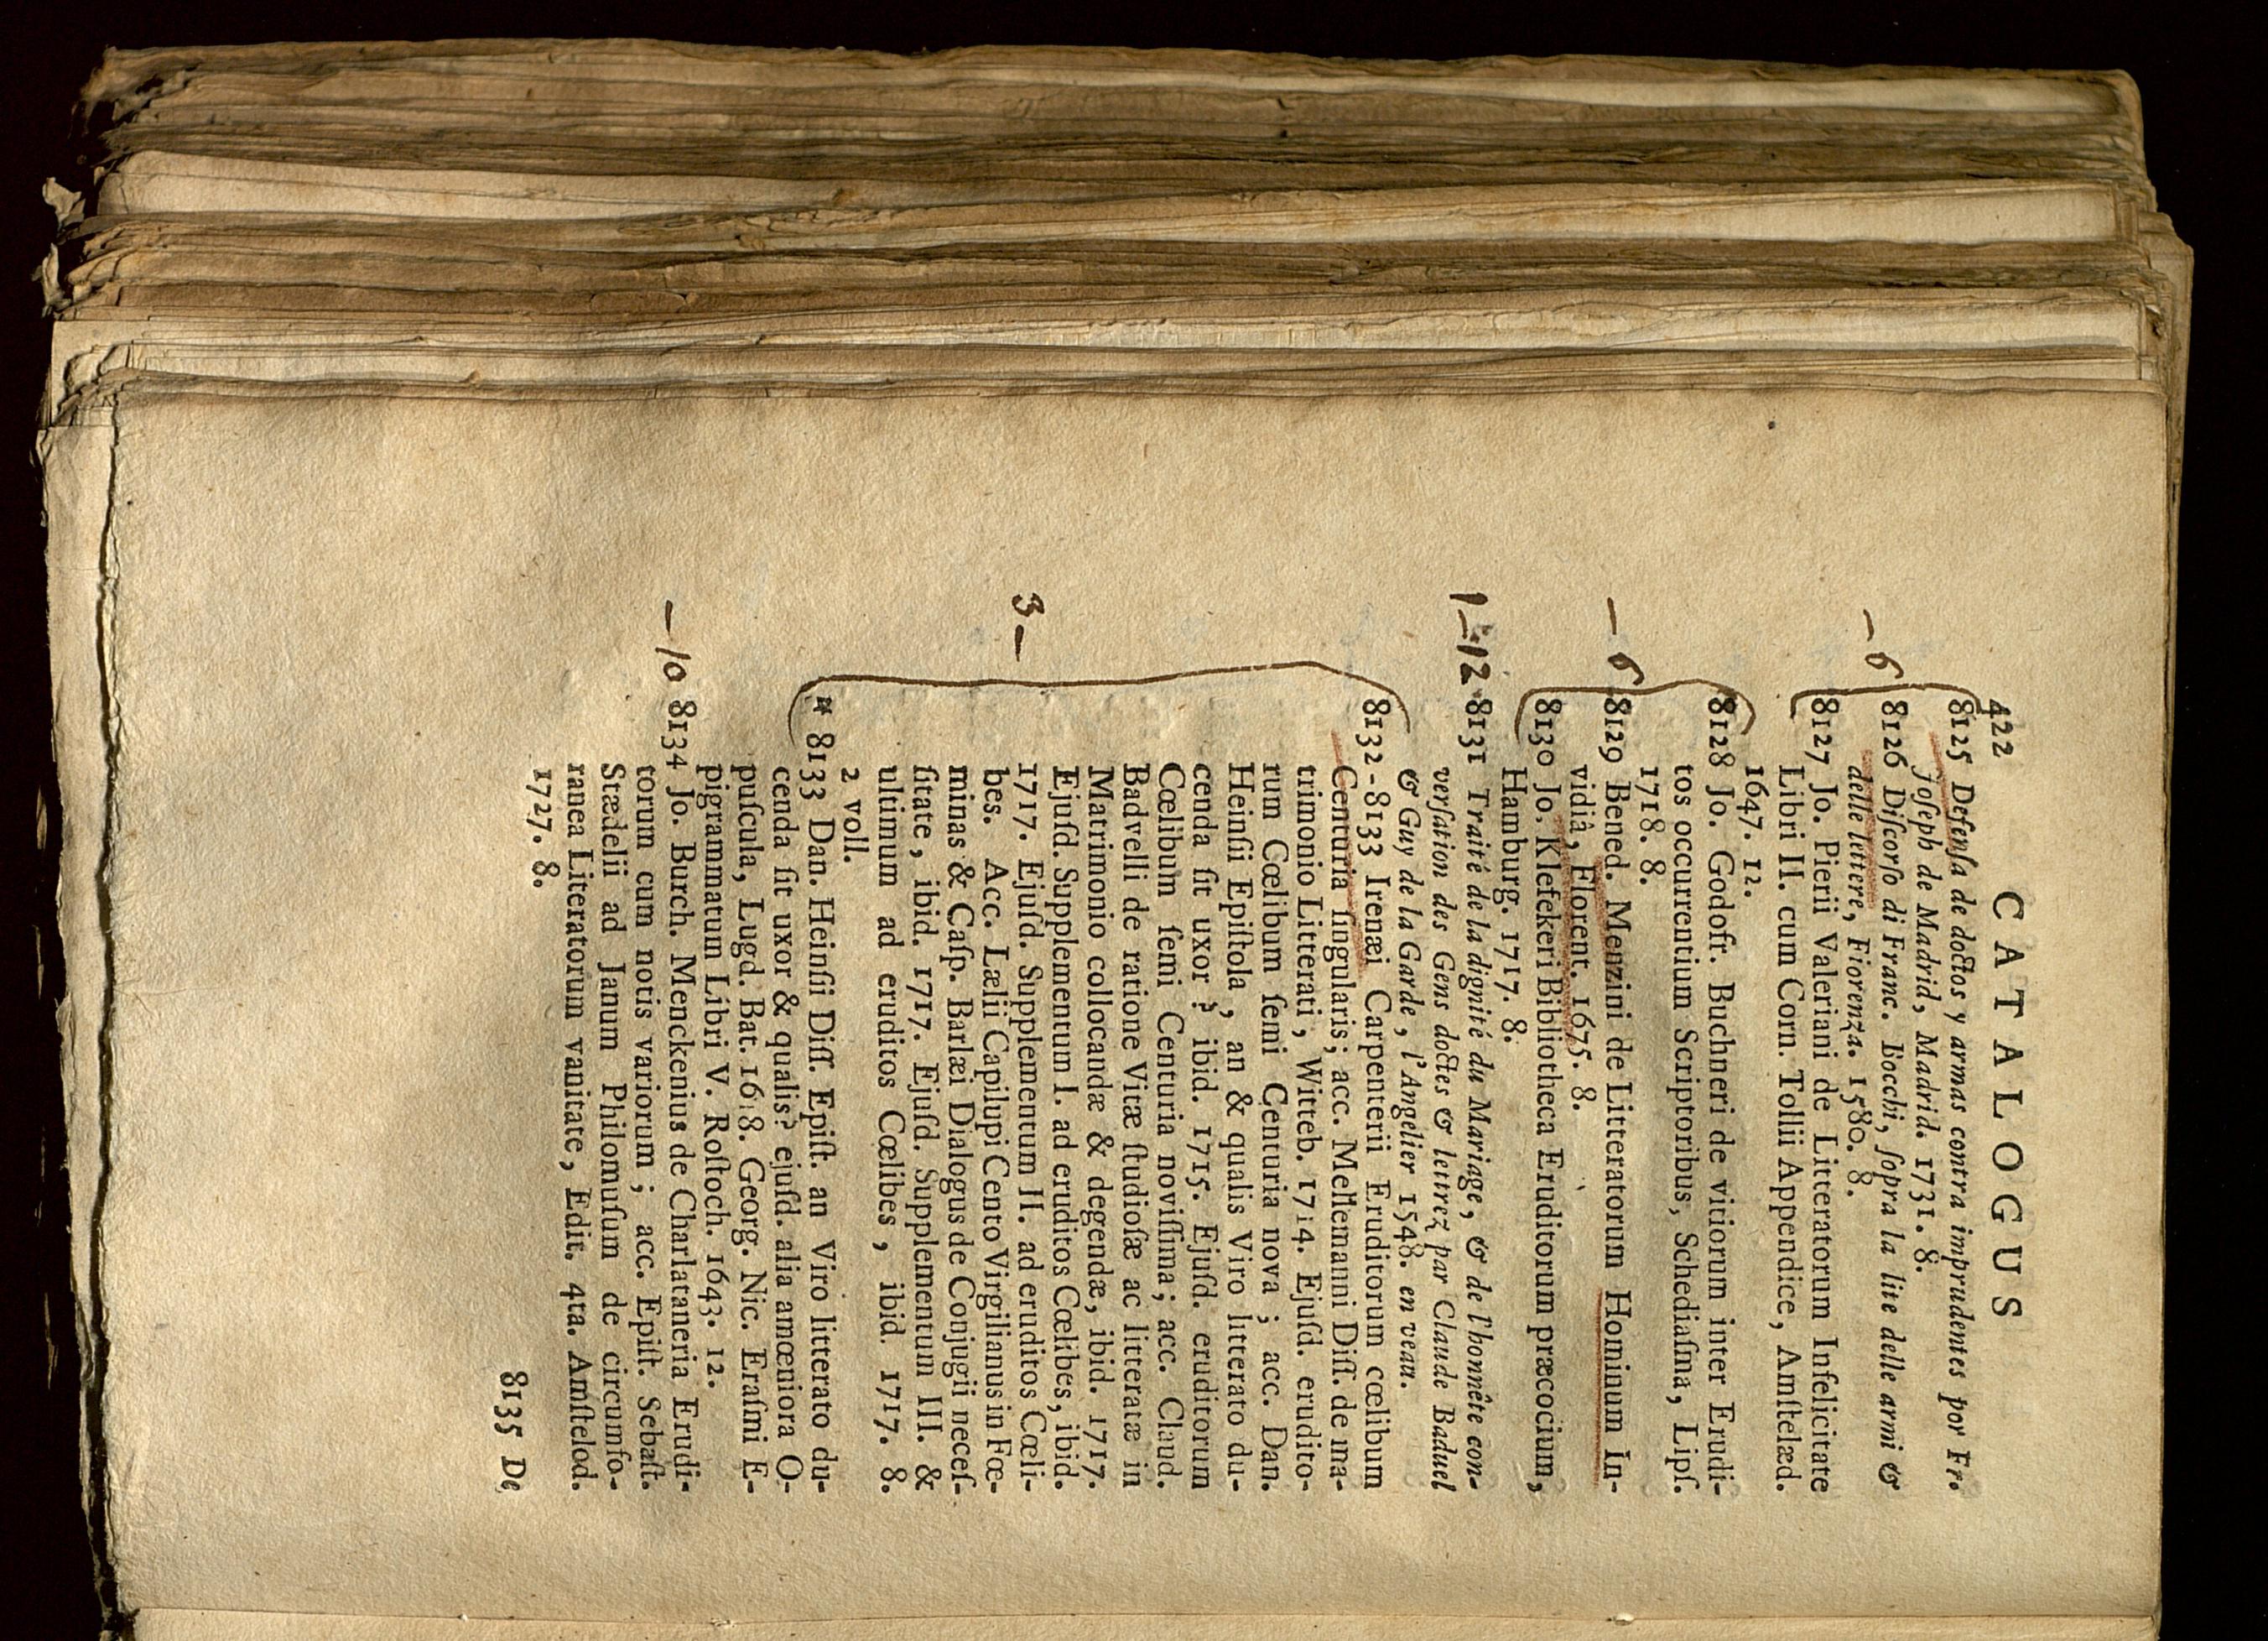 422 CATALOGUS
8125 Defenſa de doctos y armas contra imprudentes por Fr.
Joſeph de Madrid, Madrid. 1731. 8.
— 6
8126 Diſcorſo di Franc. Bocchi, ſopra la lite delle armi &
delle lettere, Fiorenza. 1580. 8.
8127 Jo. Pierii Valeriani de Litteratorum Infelicitate
Libri II. cum Corn. Tollii Appendice, Amſtelæd.
1647. 12.
8128 Jo. Godofr. Buchneri de vitiorum inter Erudi-
tos occurrentium Scriptoribus, Schediaſma, Lipſ.
1718. 8.
— 6
8129 Bened. Menzini de Litteratorum Hominum In-
vidiâ, Florent. 1675. 8.
8130 Jo. Klefekeri Bibliotheca Eruditorum præcocium,
Hamburg. 1717. 8.
1—12 8131 Traité de la dignité du Mariage, & de l'honnête con-
verſation des Gens doctes & lettrez par Claude Baduel
& Guy de la Garde, l'Angelier 1548. en veau.
8132-8133 Irenæi Carpenterii Eruditorum cœlibum
Centuria ſingularis; acc. Meſlemanni Diſſ. de ma-
trimonio Litterati, Witteb. 1714. Ejuſd. erudito-
rum Cœlibum ſemi Centuria nova; acc. Dan.
Heinſii Epiſtola, an & qualis Viro litterato du-
cenda ſit uxor? ibid. 1715. Ejuſd. eruditorum
Cœlibum ſemi Centuria noviſſima; acc. Claud.
Badvelli de ratione Vitæ ſtudioſæ ac litteratæ in
Matrimonio collocandæ & degendæ, ibid. 1717.
Ejuſd. Supplementum I. ad eruditos Cœlibes, ibid.
3—
1717. Ejuſd. Supplementum II. ad eruditos Cœli-
bes. Acc. Lælii Capilupi Cento Virgilianus in Fœ-
minas & Caſp. Barlæi Dialogus de Conjugii neceſ-
ſitate, ibid. 1717. Ejuſd. Supplementum III. &
ultimum ad eruditos Cœlibes, ibid. 1717. 8.
2 voll.
* 8133 Dan. Heinſii Diſſ. Epiſt. an Viro litterato du-
cenda ſit uxor & qualis? ejuſd. alia amœniora O-
puſcula, Lugd. Bat. 1618. Georg. Nic. Eraſmi E-
pigrammatum Libri V. Roſtoch. 1643. 12.
—10 8134 Jo. Burch. Menckenius de Charlataneria Erudi-
torum cum notis variorum; acc. Epiſt. Sebaſt.
Stædelii ad Janum Philomuſum de circumfo-
ranea Literatorum vanitate, Edit. 4ta. Amſtelod.
1727. 8.
8135 De